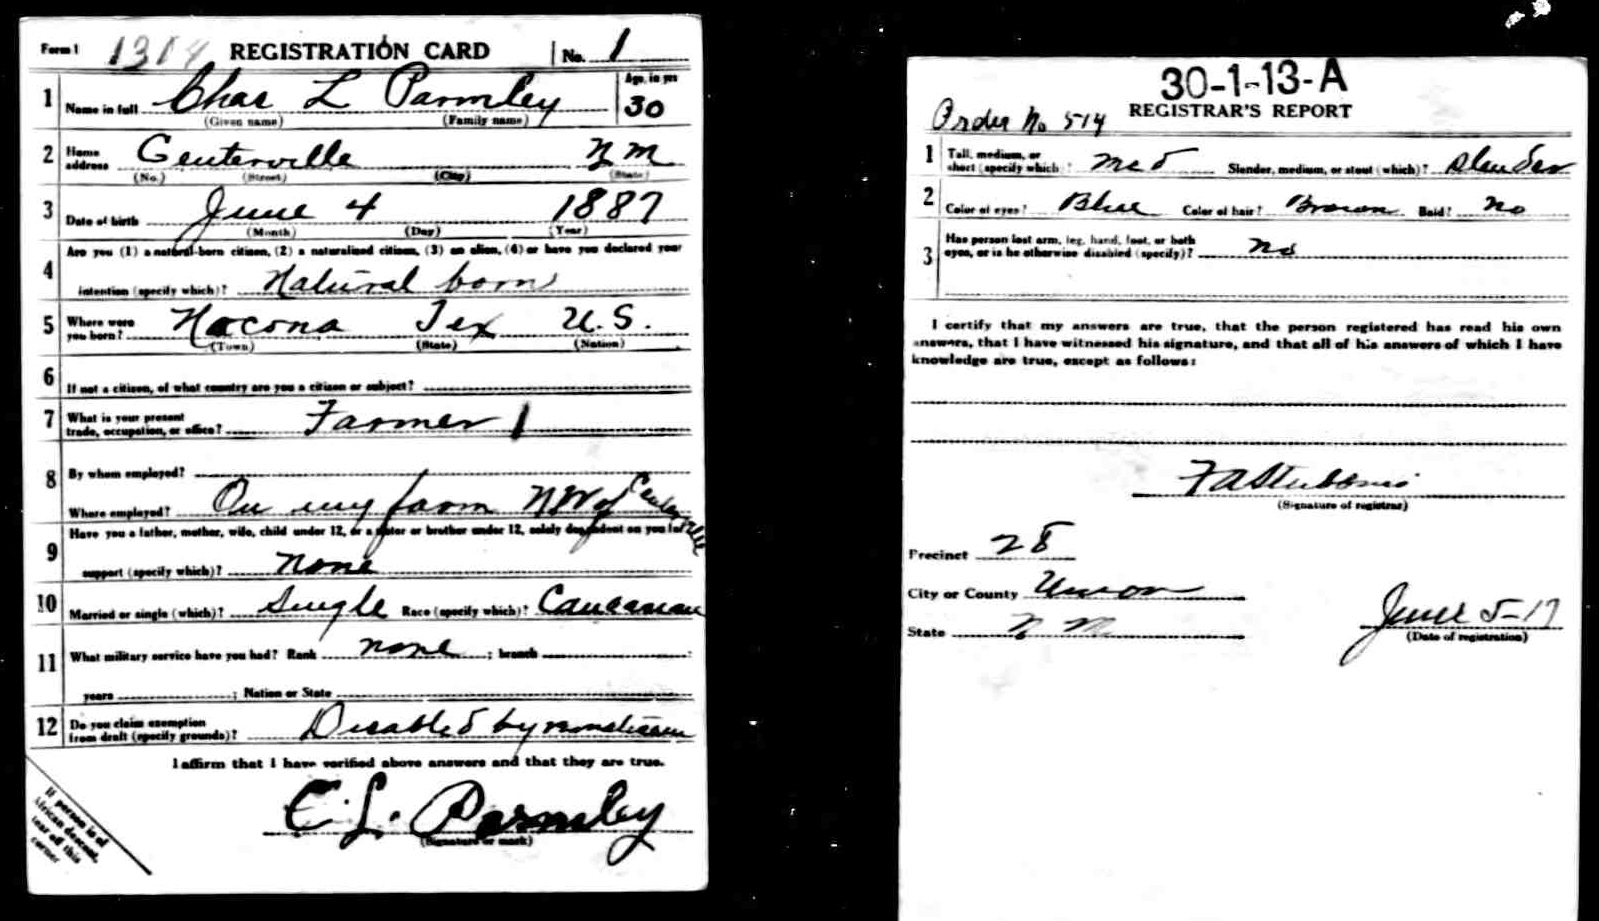 Form 1 1314 REGISTRATION CARD No. 1
1 Name in full Chas L Parmley Age, in yrs 30
(Given name) (Family name)
2 Home address Centerville N M
(No.) (Street) (City) (State)
3 Date of birth June 4 1887
(Month) (Day) (Year)
4 Are you (1) a natural-born citizen, (2) a naturalized citizen, (3) an alien, (4) or have you declared your
intention (specify which)? Natural born
5 Where were you born? Nocona Tex U.S.
(Town) (State) (Nation)
6 If not a citizen, of what country are you a citizen or subject?
7 What is your present trade, occupation, or office? Farmer 1
8 By whom employed?
Where employed? On my farm NW of Centerville
9 Have you a father, mother, wife, child under 12, or a sister or brother under 12, solely dependent on you for
support (specify which)? None
10 Married or single (which)? Single Race (specify which)? Caucasian
11 What military service have you had? Rank none ; branch ;
years ; Nation or State
12 Do you claim exemption from draft (specify grounds)? Disabled by
I affirm that I have verified above answers and that they are true.
C. L. Parmley
(Signature or mark)
If person is of
African descent,
tear off this
corner
30-1-13-A
Order No 514 REGISTRAR'S REPORT
1 Tall, medium, or short (specify which)? Med Slender, medium, or stout (which)? Slender
2 Color of eyes? Blue Color of hair? Brown Bald? No
3 Has person lost arm, leg, hand, foot, or both eyes, or is he otherwise disabled (specify)? No
I certify that my answers are true, that the person registered has read his own
answers, that I have witnessed his signature, and that all of his answers of which I have
knowledge are true, except as follows:
(Signature of registrar)
Precinct 28
City or County Union
State N M
June 5-17
(Date of registration)